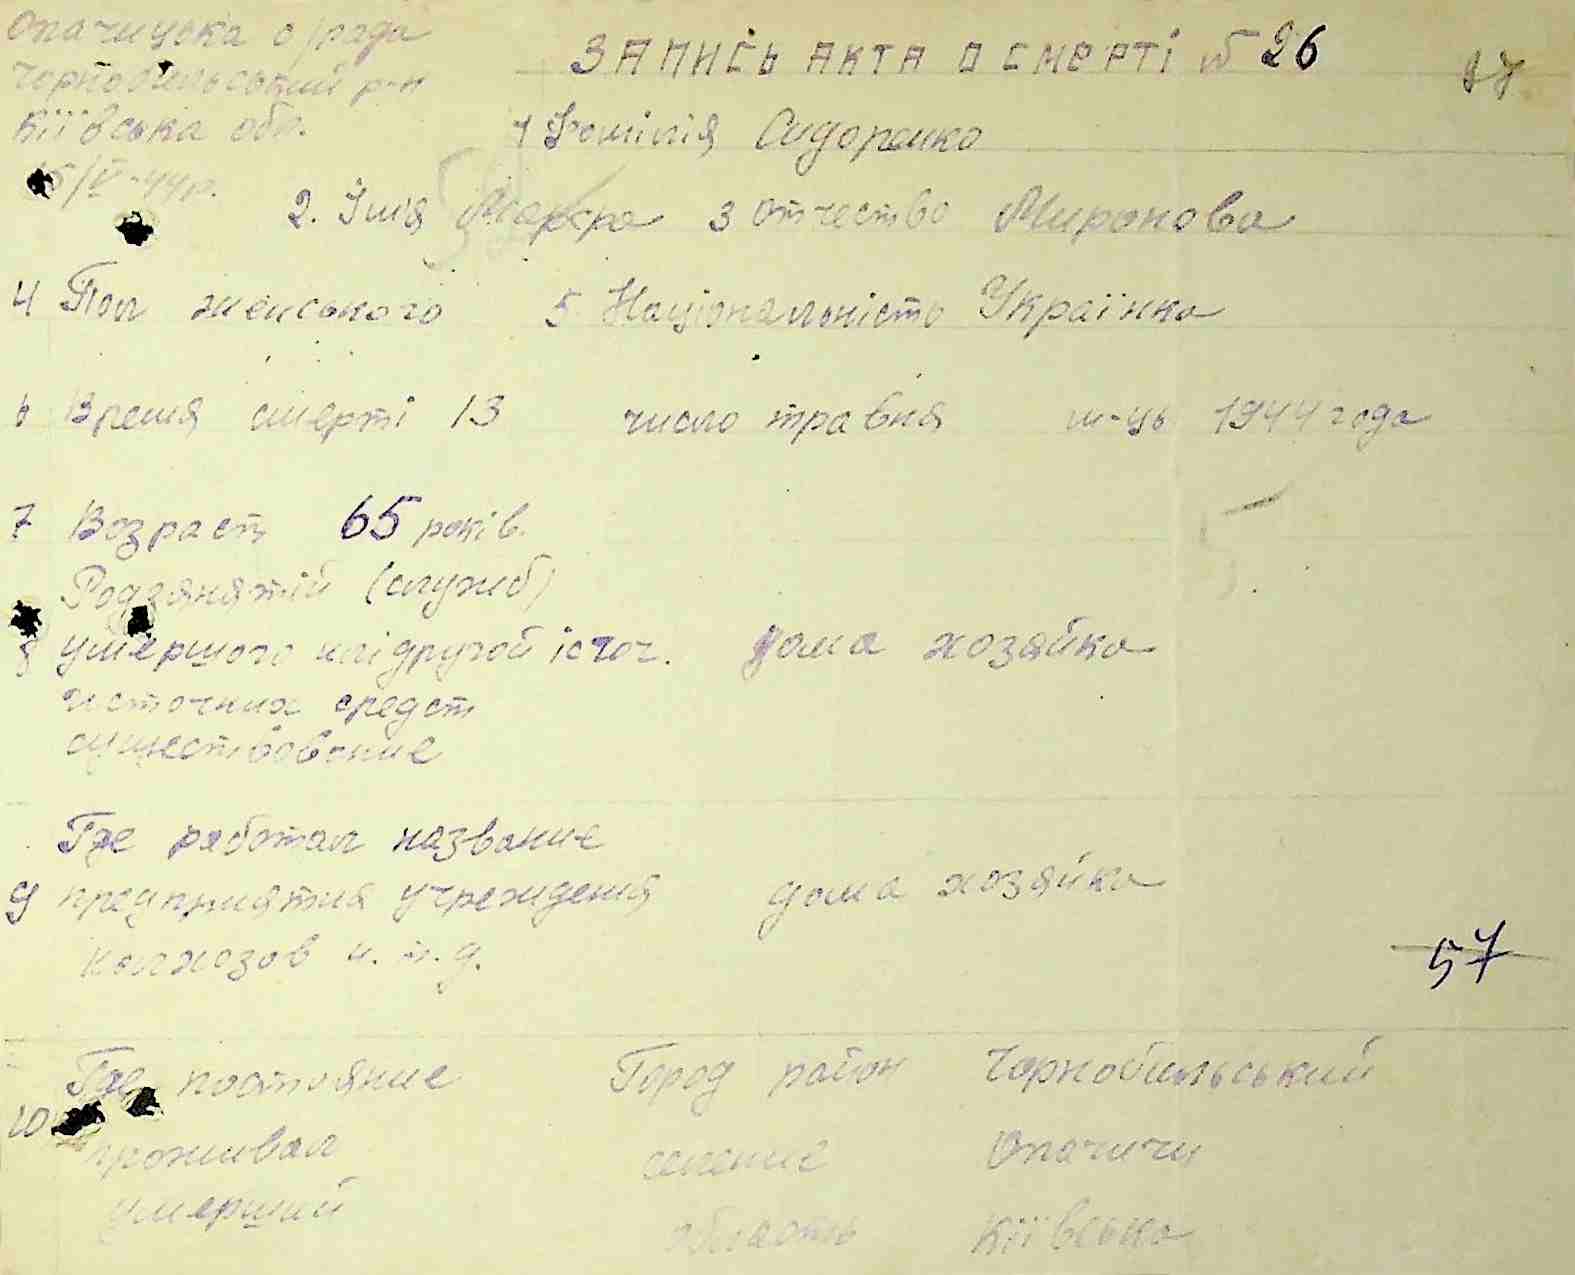 Опачицька с/рада
Чорнобильський р-н
Київська обл.
15/V-44р.
ЗАПИСЬ АКТА О СМЕРТІ № 26
1 Фомілія Сидоренко
2. Імія 3 отчество Миронова
4 Пол женського 5 Національність Українка
6 Время смерті 13 число травня м-ць 1944 года
7 Возраст 65 років.
Род занятій (служб)
8 умершого илі другой істоч. дома хозяйка
источник средст
существование
Где работал название
9 предприятия учреждения дома хозяйка
колхозов и. т. д.
57
Где постояние Город район Чорнобильський
10 проживал селение Опачичи
умерший область Київська